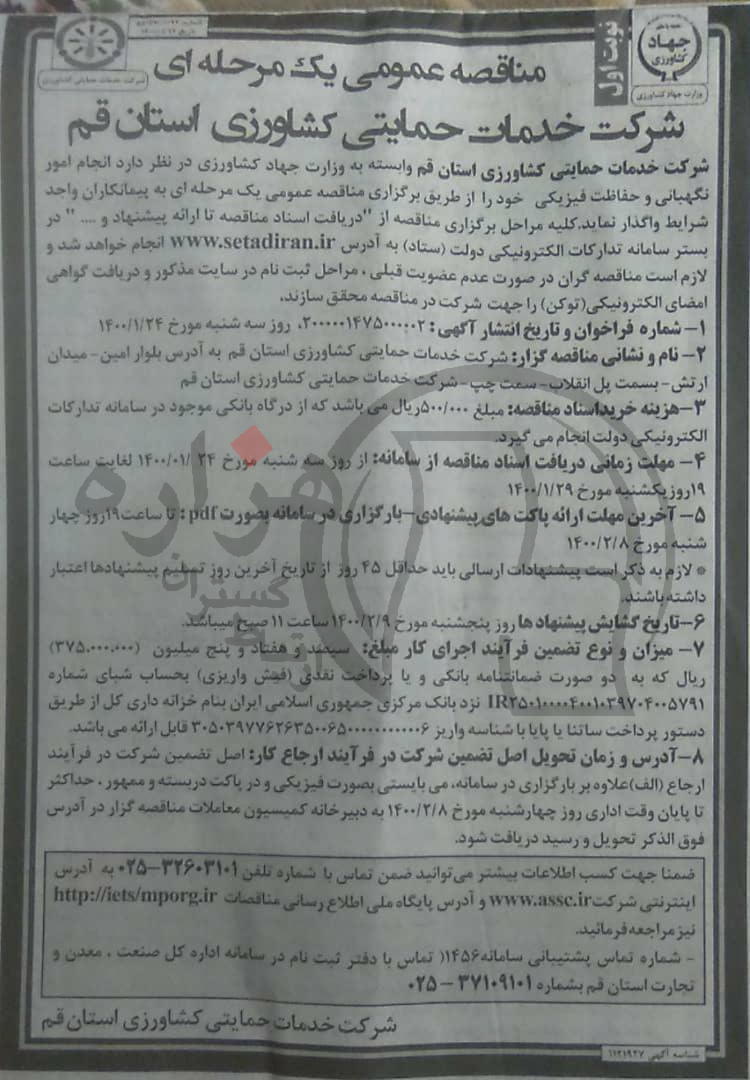 نوبت اول
جهاد
کشاورزی
وزارت جهاد کشاورزی
شرکت خدمات حمایتی کشاورزی
مناقصه عمومی یک مرحله ای
شرکت خدمات حمایتی کشاورزی استان قم
شرکت خدمات حمایتی کشاورزی استان قم وابسته به وزارت جهاد کشاورزی در نظر دارد انجام امور
نگهبانی و حفاظت فیزیکی خود را از طریق برگزاری مناقصه عمومی یک مرحله ای به پیمانکاران واجد
شرایط واگذار نماید.کلیه مراحل برگزاری مناقصه از "دریافت اسناد مناقصه تا ارائه پیشنهاد و .... " در
بستر سامانه تدارکات الکترونیکی دولت (ستاد) به آدرس www.setadiran.ir انجام خواهد شد و
لازم است مناقصه گران در صورت عدم عضویت قبلی ، مراحل ثبت نام در سایت مذکور و دریافت گواهی
امضای الکترونیکی(توکن) را جهت شرکت در مناقصه محقق سازند.
۱- شماره فراخوان و تاریخ انتشار آگهی: ۲۰۰۰۰۰۱۴۷۵۰۰۰۰۰۲، روز سه شنبه مورخ ۱۴۰۰/۱/۲۴
۲- نام و نشانی مناقصه گزار: شرکت خدمات حمایتی کشاورزی استان قم به آدرس بلوار امین- میدان
ارتش- بسمت پل انقلاب- سمت چپ- شرکت خدمات حمایتی کشاورزی استان قم
۳-هزینه خریداسناد مناقصه: مبلغ ۵۰۰/۰۰۰ریال می باشد که از درگاه بانکی موجود در سامانه تدارکات
الکترونیکی دولت انجام می گیرد.
۴- مهلت زمانی دریافت اسناد مناقصه از سامانه: از روز سه شنبه مورخ ۲۴ /۱۴۰۰/۰۱ لغایت ساعت
۱۹روزیکشنبه مورخ ۱۴۰۰/۱/۲۹
۵- آخرین مهلت ارائه پاکت های پیشنهادی-بارگزاری در سامانه بصورت pdf: تا ساعت۱۹روز چهار
شنبه مورخ ۱۴۰۰/۲/۸
* لازم به ذکر است پیشنهادات ارسالی باید حداقل ۴۵ روز از تاریخ آخرین روز تسلیم پیشنهادها اعتبار
داشته باشند.
۶-تاریخ گشایش پیشنهاد ها روز پنجشنبه مورخ ۱۴۰۰/۲/۹ ساعت ۱۱ صبح میباشد.
۷- میزان و نوع تضمین فرآیند اجرای کار مبلغ: سیصد و هفتاد و پنج میلیون (۳۷۵.۰۰۰.۰۰۰)
ریال که به دو صورت ضمانتنامه بانکی و یا پرداخت نقدی (فیش واریزی) بحساب شبای شماره
IR۲۵۰۱۰۰۰۰۴۰۰۱۰۳۹۷۰۴۰۰۵۷۹۱ نزد بانک مرکزی جمهوری اسلامی ایران بنام خزانه داری کل از طریق
دستور پرداخت ساتنا یا پایا با شناسه واریز ۳۰۵۰۳۹۷۷۶۲۶۳۵۰۰۶۵۰۰۰۰۰۰۰۰۰۰۰۰۶ قابل ارائه می باشد.
۸-آدرس و زمان تحویل اصل تضمین شرکت در فرآیند ارجاع کار: اصل تضمین شرکت در فرآیند
ارجاع (الف)علاوه بر بارگزاری در سامانه، می بایستی بصورت فیزیکی و در پاکت دربسته و ممهور ، حداکثر
تا پایان وقت اداری روز چهارشنبه مورخ ۱۴۰۰/۲/۸ به دبیرخانه کمیسیون معاملات مناقصه گزار در آدرس
فوق الذکر تحویل و رسید دریافت شود.
ضمنا جهت کسب اطلاعات بیشتر می‌توانید ضمن تماس با شماره تلفن ۳۲۶۰۳۱۰۱-۰۲۵ به آدرس
اینترنتی شرکت www.assc.ir و آدرس پایگاه ملی اطلاع رسانی مناقصات http://iets/mporg.ir
نیز مراجعه فرمائید.
- شماره تماس پشتیبانی سامانه۱۴۵۶( تماس با دفتر ثبت نام در سامانه اداره کل صنعت ، معدن و
تجارت استان قم بشماره ۳۷۱۰۹۱۰۱ - ۰۲۵
شرکت خدمات حمایتی کشاورزی استان قم
شناسه آگهی ۱۱۲۱۹۲۷
هزاره